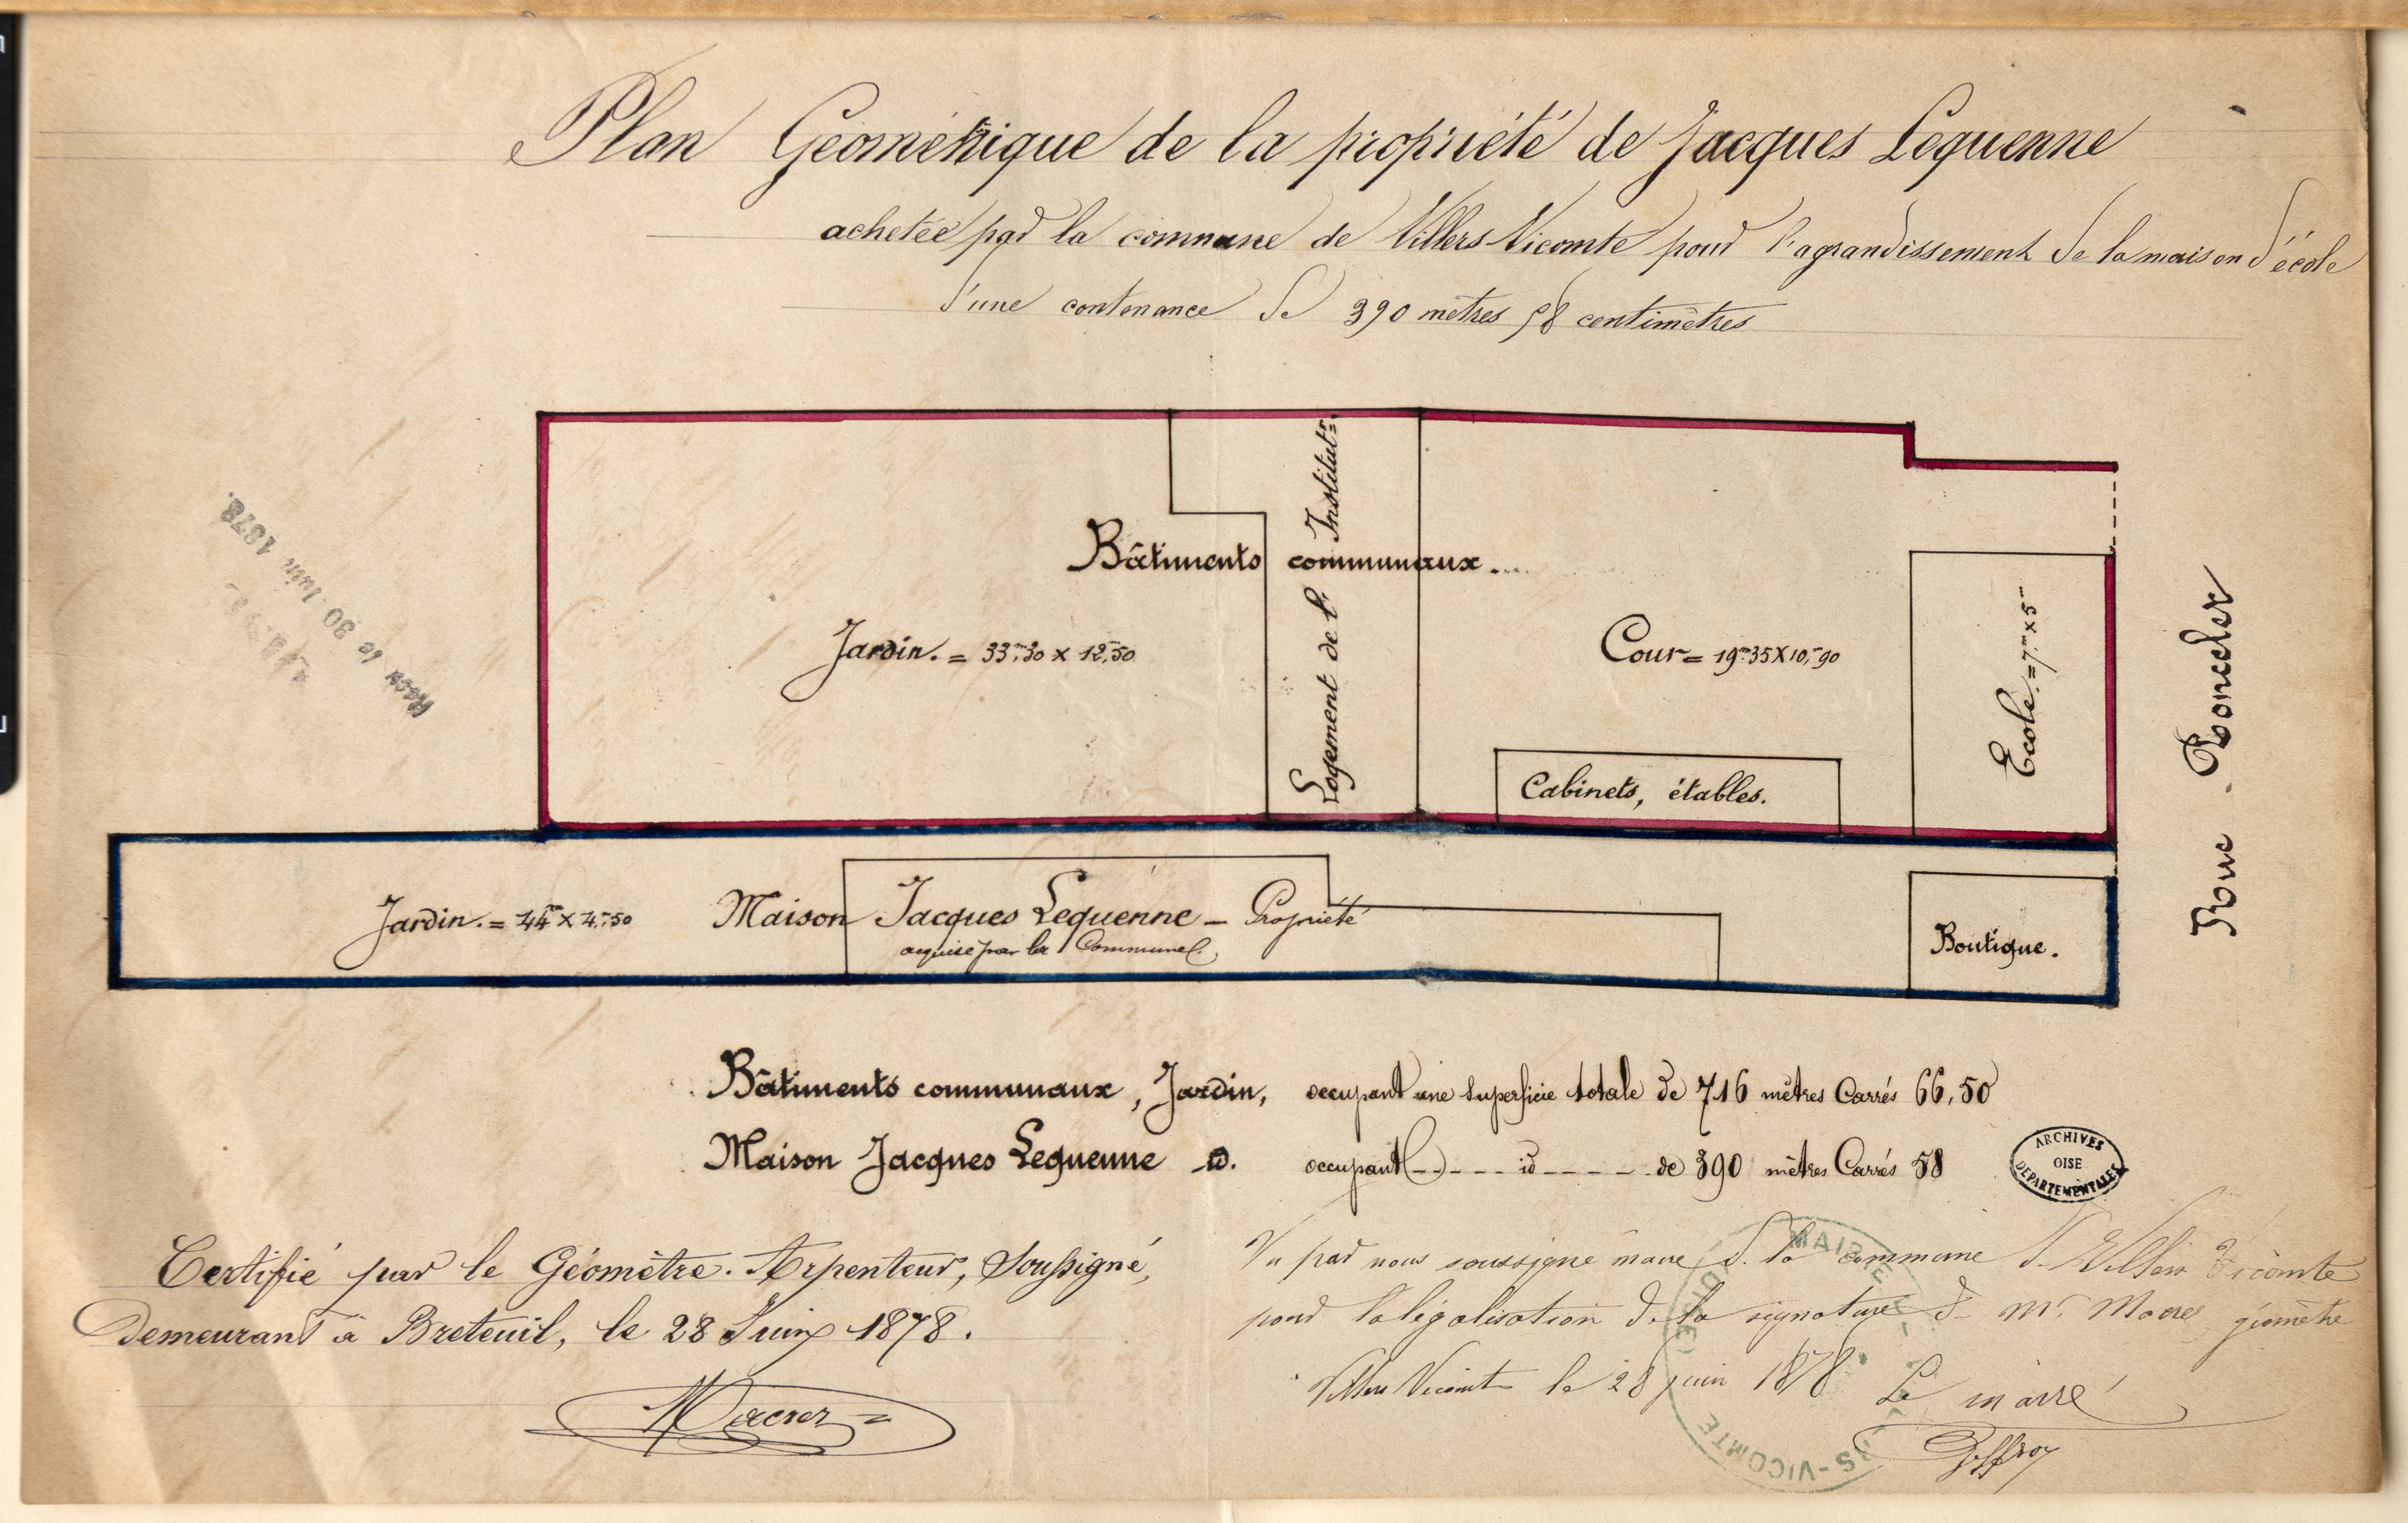 Plan Géométrique de la propriété de Jacques Lequenne
achetée par la commune de Villers Vicomte pour l'agrandissement de la maison d'école
d'une contenance de 390 mètres 58 centimètres
Reçu le 30 Juin 1878.
Logement de l'Institut.r=
Bâtiments communaux.
Jardin. = 33.m30 x 12.m50
Cour = 19.m35 X 10.m90
Ecole. = 7.m x 5m
Cabinets, étables.
Rue Roncler
Jardin. = 44m x 4.m50
Maison Jacques Lequenne - Propriété
acquise par la Commune.
Boutique.
Bâtiments communaux, Jardin, occupant une superficie totale de 716 mètres Carrés 66,50
Maison Jacques Lequenne d. occupant - - - - id - - - - - de 390 mètres Carrés 58
ARCHIVES
OISE
DEPARTEMENTALES
Certifié par le Géomètre-Arpenteur, Soussigné,
Demeurant à Breteuil, le 28 Juin 1878.
Vu par nous soussigné maire de la commune de Villers Vicomte
pour la légalisation de la signature de Mr. géomètre
Villers Vicomte le 28 juin 1878. Le maire
Geffroy
MAIRIE DE VILLERS-VICOMTE (OISE)